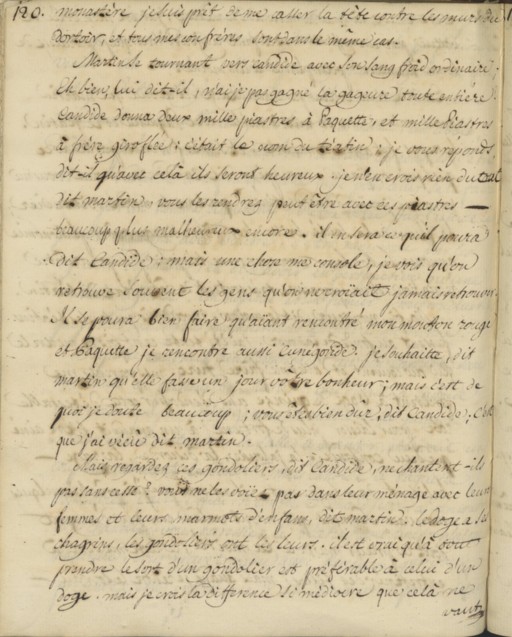 120. monastère, je suis prêt de me casser la tête contre les murs du
dortoir, et tous mes confrères sont dans le même cas.
Martin se tournant vers candide avec son sang froid ordinaire;
Eh bien, lui dit-il, n'ai je pas gagné la gageure toute entière.
Candide donna deux mille piastres à Paquette, et mille Piastres
à frère giroflée: c'était le nom du téatin: je vous répond
dit-il qu'avec celà ils seront heureux. je n'en crois rien du tout
dit martin, vous les rendrez peut être avec ces piastres
beaucoup plus malheureux encores. il en sera ce qu'il poura
dit Candide: mais une chose me console, je vois qu'on
retrouve souvent les gens qu'on ne croïait jamais retrouver.
Il se poura bien faire qu'aïant rencontré mon mouton rouge
et Paquette je rencontre aussi Cunegonde. je souhaitte, dit
martin qu'elle fasse un jour vôtre bonheur; mais c'est de
quoi je doute beaucoup; vous êtes bien dur, dit Candide; C'est
que j'ai vécu dit martin.
Mais regardez ces gondoliers, dit Candide, ne chantent-ils
pas sans cesse? vous ne les voïez pas dans leur ménage avec leurs
femmes et leurs marmots d'enfans, dit martin. le doge a ses
chagrins, les gondoliers ont les leurs. il est vrai qu'à tout
prendre le sort d'un gondolier est préférable à celui d'un
doge. mais je crois la difference si médiocre que celà ne
vaut